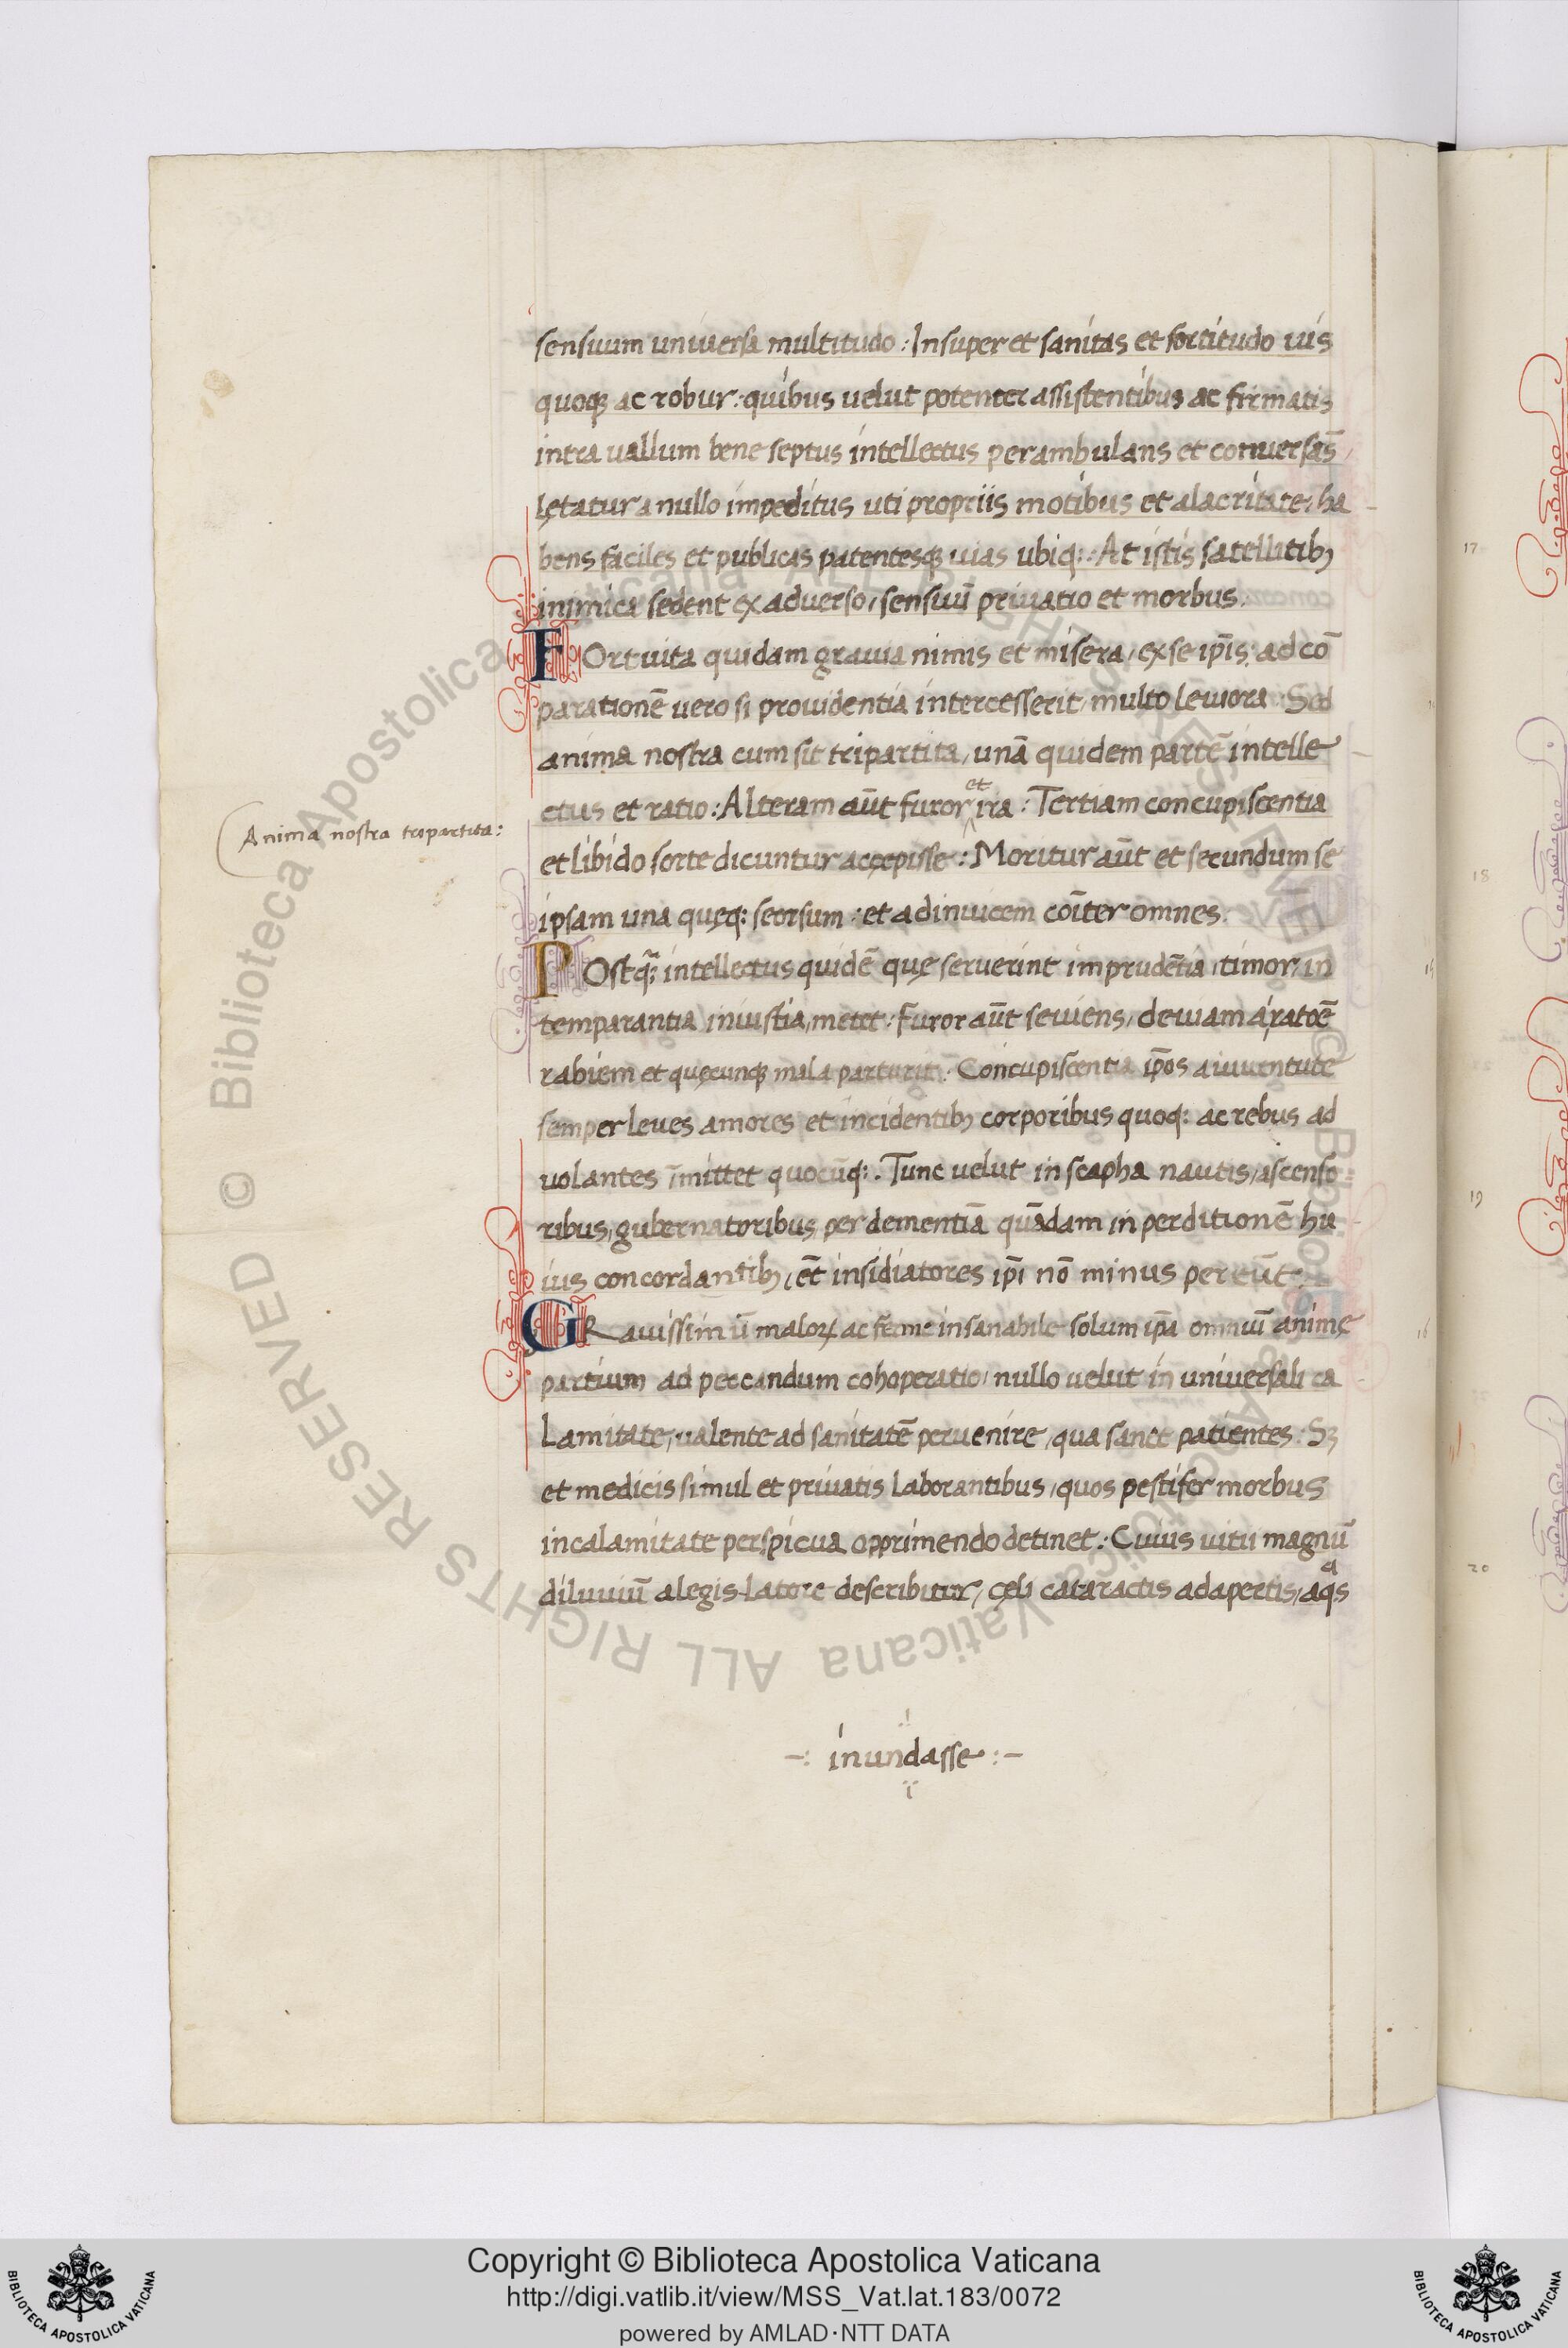 sensuum uniuersa multitudo : Insuper et sanitas et fortitudo uis
quoqꝫ ac robur : quibus uelut potenter assistentibus ac firmatis
intra uallum bene septus intellectus perambulans et conuersãs
lętatur a nullo impeditus uti propriis motibus et alacritate, ha
bens faciles et publicas patentesqꝫ uias ubiq: : At istis satellitibꝫ
inimica sedent ex aduerso, sensuũ priuatio et morbus .
FOrtuita quidam grauia nimis et misera, ex se ip̃is : ad cõ
parationẽ uero si prouidentia intercesserit, multo leuiora : Sed
anima nostra cum sit tripartita, unã quidem partẽ intelle
ctus et ratio : Alteram aũt furor et ira : Tertiam concupiscentia
Anima nostra tripartita :
et libido sorte dicuntur accepisse : Moritur aũt et secundum se
ipsam una quęq: seorsum : et adinuicem cõiter omnes .
POstq̃ꝫ intellectus quidẽ quę seruerint imprudẽtia, timor, in
temparantia iniustia, metet : furor aũt seuiens, deuiam
rabiem et quęcunqꝫ mala parturit : Concupiscentia ip̃os a iuuentute
semper leues amores et incidentibꝫ corporibus quoq: ac rebus ad
uolantes ĩmittet quocũq: . Tunc uelut in scapha nautis, ascenso
ribus, gubernatoribus, per dementiã quãdam in perditionẽ hu
ius concordantibꝫ, et insidiatores ip̃i nõ minus pereũt .
GRauissimũ maloꝝ ac ferme insanabile solum ip̃a omniũ animę
partium ad peccandum cohoperatio, nullo uelut in uniuersali ca
lamitate, ualente ad sanitatẽ peruenire, qua sanet patientes : Sꝫ
et medicis simul et priuatis laborantibus, quos pestifer morbus
in calamitate perspicua opprimendo detinet : Cuius uitii magnũ
diluuiũ a legis latore describitur, cęli cataractis adapertis, aqᵃs
-: inundasse :-
Copyright © Biblioteca Apostolica Vaticana
http://digi.vatlib.it/view/MSS_Vat.lat.183/0072
powered by AMLAD·NTT DATA